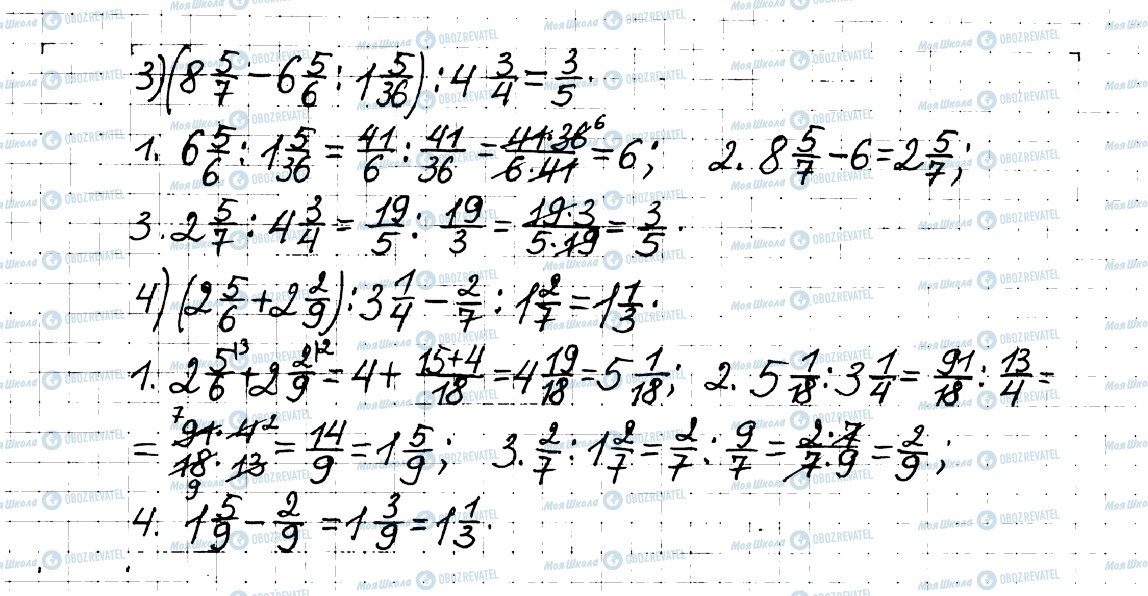 3) (8 5/7 − 6 5/6 : 1 5/36) : 4 3/4 = 3/5.
1. 6 5/6 : 1 5/36 = 41/6 : 41/36 = 41·36 6/6·41 = 6; 2. 8 5/7 − 6 = 2 5/7;
3. 2 5/7 : 4 3/4 = 19/5 : 19/3 = 19·3/5·19 = 3/5.
4) (2 5/6 + 2 2/9) : 3 1/4 − 2/7 : 1 2/7 = 1 1/3.
1. 2 5/6 |3 + 2 2/9 |2 = 4 + 15+4/18 = 4 19/18 = 5 1/18; 2. 5 1/18 : 3 1/4 = 91/18 : 13/4 =
= 7 91·4 2/18 9·13 = 14/9 = 1 5/9; 3. 2/7 : 1 2/7 = 2/7 : 9/7 = 2·7/7·9 = 2/9;
4. 1 5/9 − 2/9 = 1 3/9 = 1 1/3.
Моя Школа OBOZREVATEL